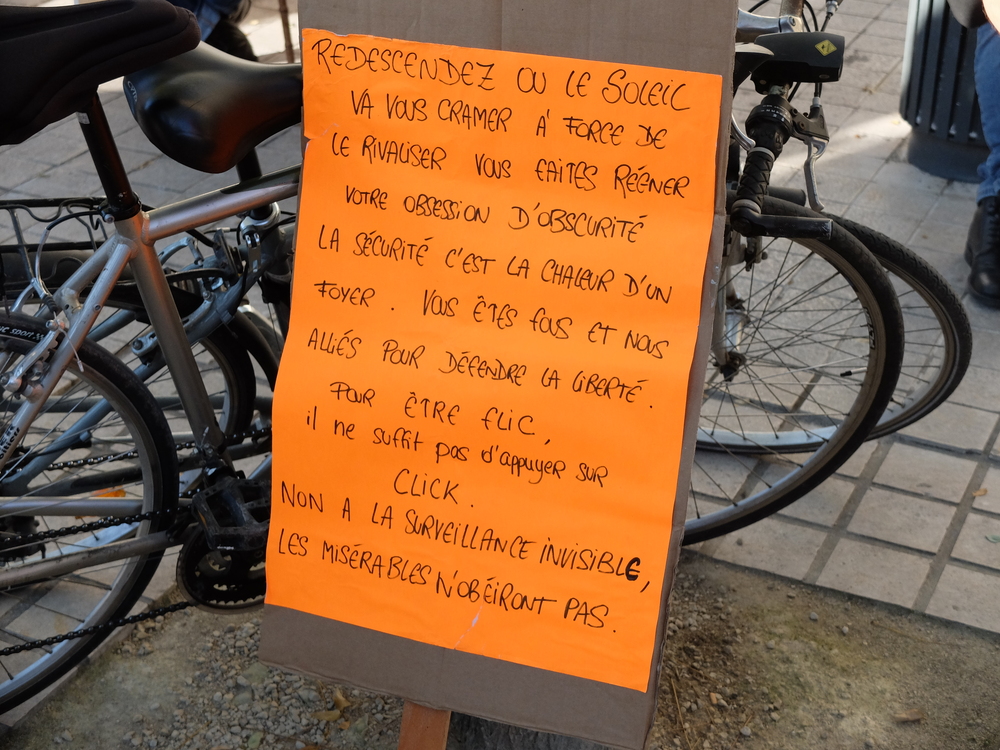 REDESCENDEZ OU LE SOLEIL
VA VOUS CRAMER À FORCE DE
LE RIVALISER VOUS FAITES RÉGNER
VOTRE OBSESSION D'OBSCURITÉ
LA SÉCURITÉ C'EST LA CHALEUR D'UN
FOYER. VOUS ÊTES FOUS ET NOUS
ALLIÉS POUR DÉFENDRE LA LIBERTÉ.
POUR ÊTRE FLIC,
il ne suffit pas d'appuyer sur
CLICK.
NON A LA SURVEILLANCE INVISIBLE,
LES MISÉRABLES N'OBÉIRONT PAS.